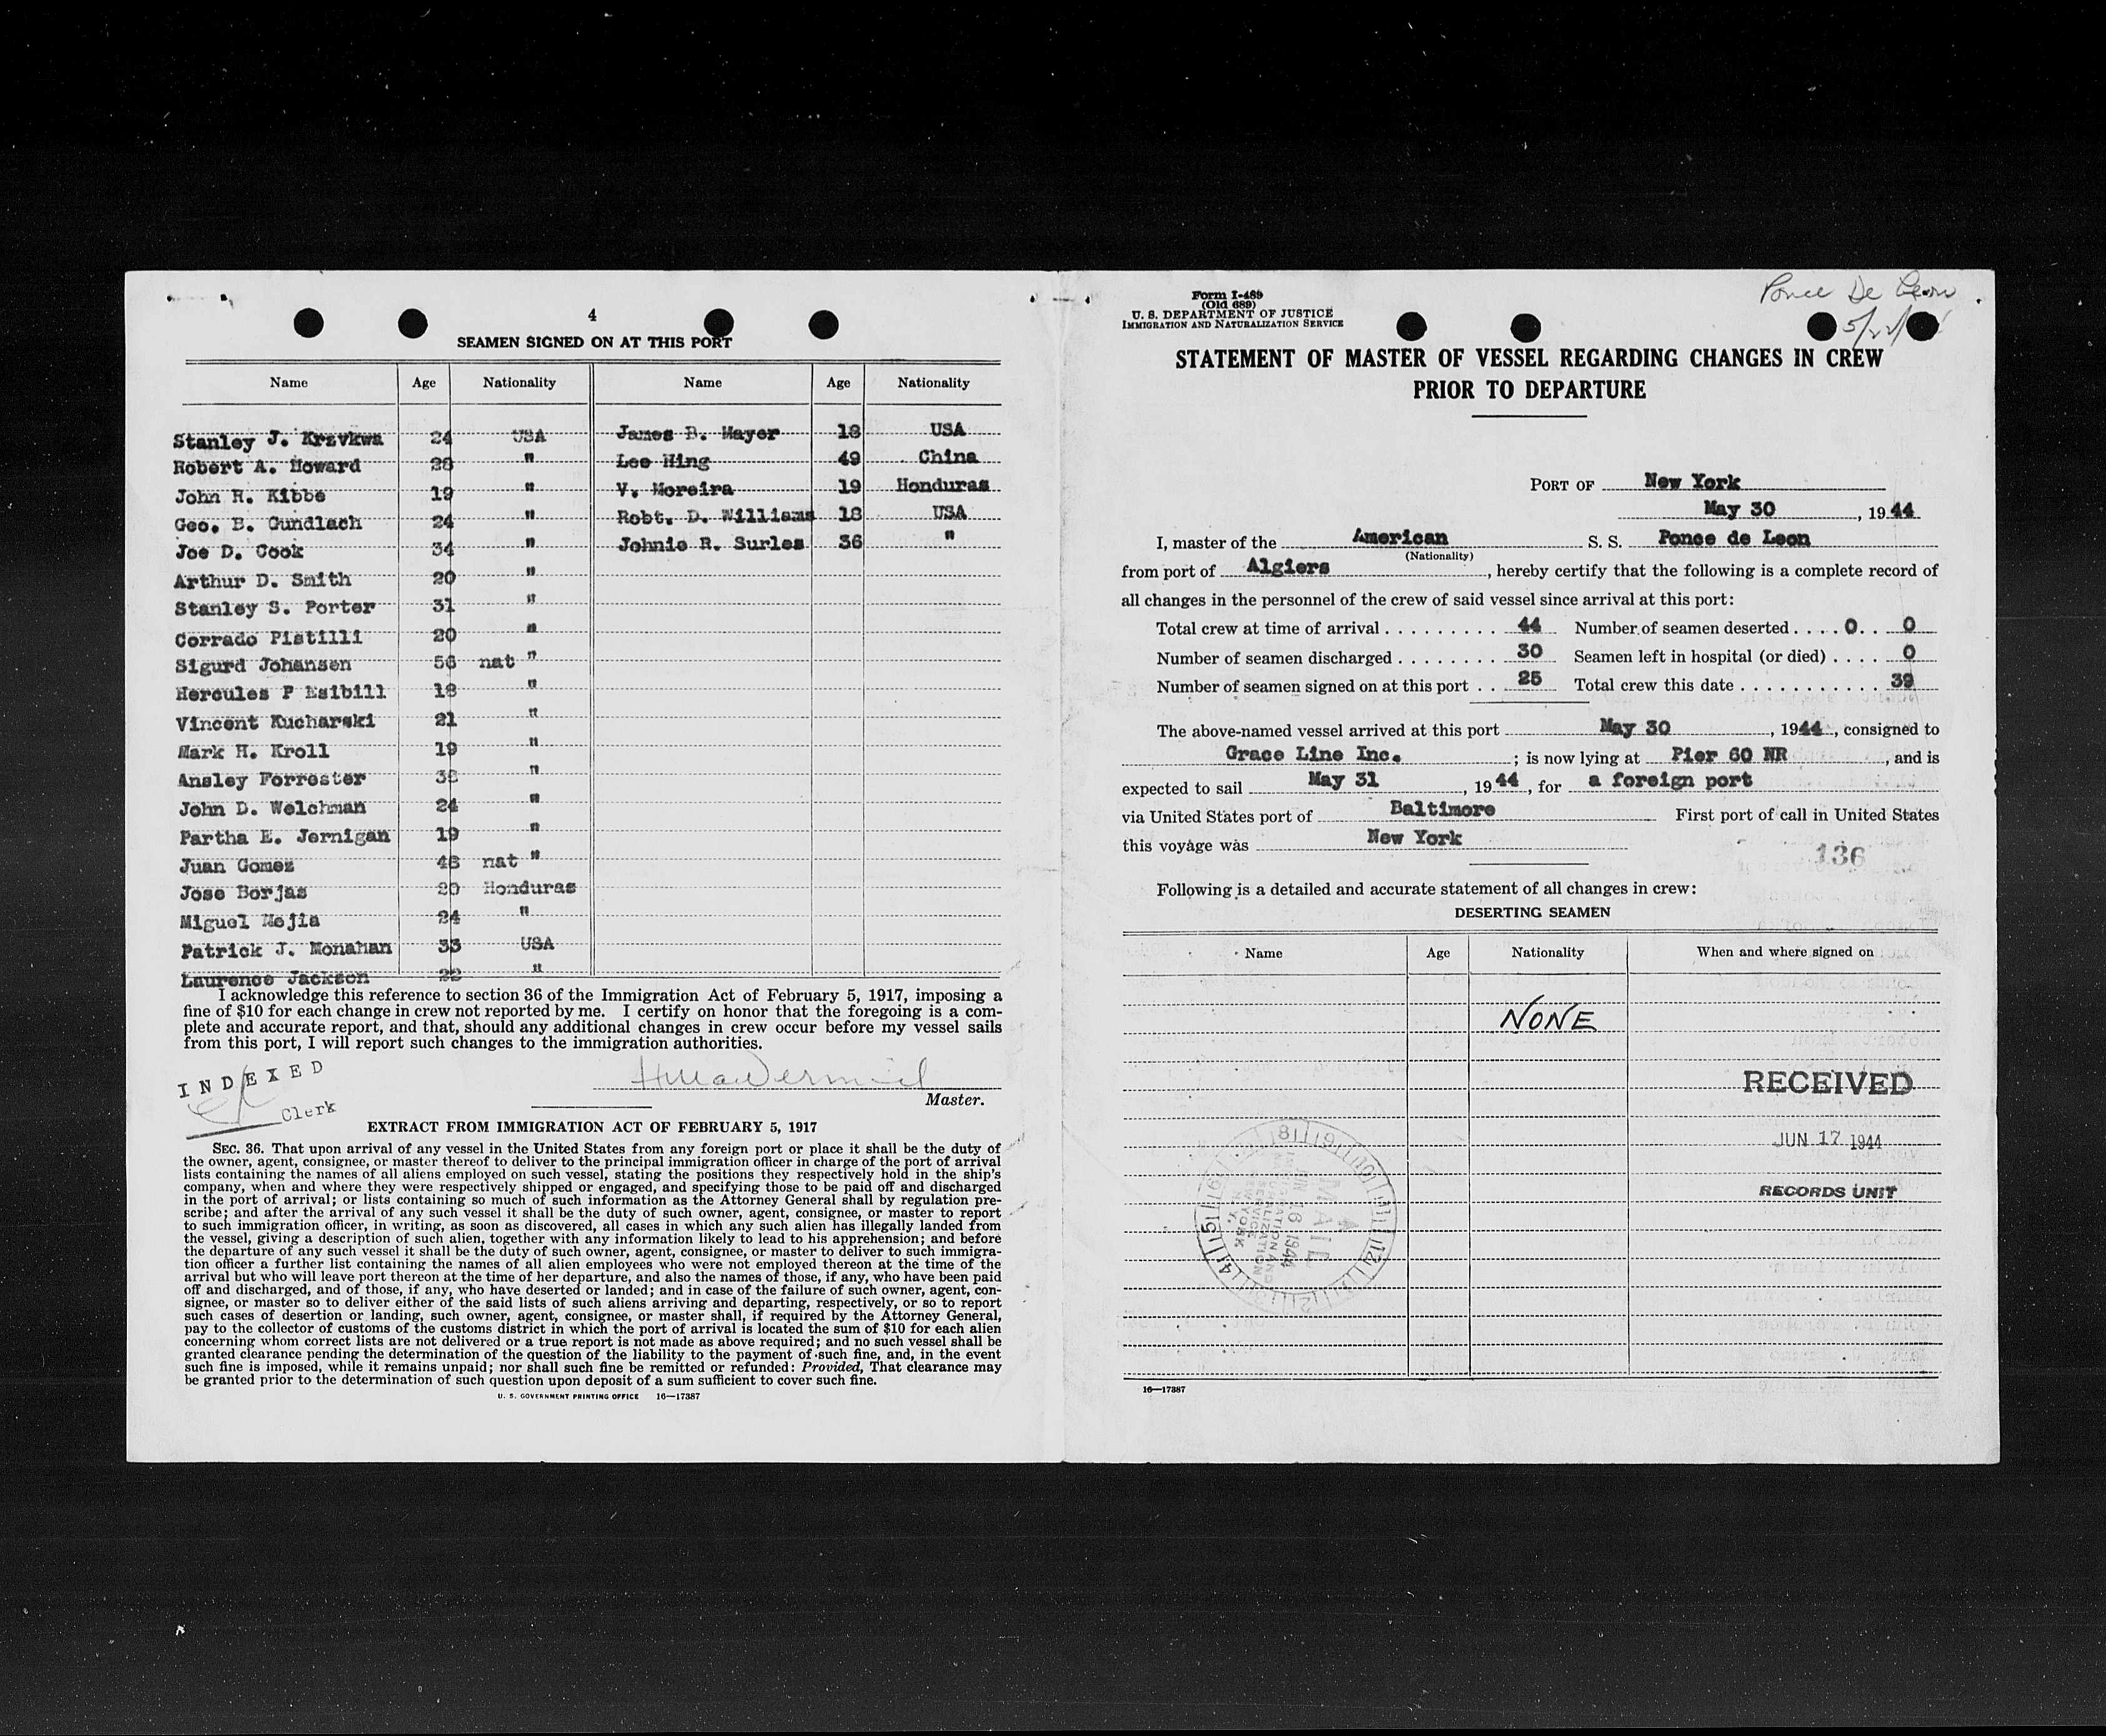 4
SEAMEN SIGNED ON AT THIS PORT
Name Age Nationality Name Age Nationality
Stanley J. Krzvkwa 24 USA James B. Mayer 18 USA
Robert A. Howard 28 " Lee Hing 49 China
John R. Kibbe 19 " V. Moreira 19 Honduras
Geo. B. Gundlach 24 " Robt. D. Williams 18 USA
Joe D. Cook 34 " Johnie R. Surles 36 "
Arthur D. Smith 20 "
Stanley S. Porter 31 "
Corrado Pistilli 20 "
Sigurd Johansen 56 nat "
Hercules P Esibill 18 "
Vincent Kucharski 21 "
Mark H. Kroll 19 "
Ansley Forrester 38 "
John D. Welchman 24 "
Partha E. Jernigan 19 "
Juan Gomez 48 nat "
Jose Borjas 20 Honduras
Miguel Mejia 24 "
Patrick J. Monahan 33 USA
Laurence Jackson 22 "
I acknowledge this reference to section 36 of the Immigration Act of February 5, 1917, imposing a
fine of $10 for each change in crew not reported by me. I certify on honor that the foregoing is a com-
plete and accurate report, and that, should any additional changes in crew occur before my vessel sails
from this port, I will report such changes to the immigration authorities.
INDEXED
Clerk
Master.
EXTRACT FROM IMMIGRATION ACT OF FEBRUARY 5, 1917
SEC. 36. That upon arrival of any vessel in the United States from any foreign port or place it shall be the duty of
the owner, agent, consignee, or master thereof to deliver to the principal immigration officer in charge of the port of arrival
lists containing the names of all aliens employed on such vessel, stating the positions they respectively hold in the ship's
company, when and where they were respectively shipped or engaged, and specifying those to be paid off and discharged
in the port of arrival; or lists containing so much of such information as the Attorney General shall by regulation pre-
scribe; and after the arrival of any such vessel it shall be the duty of such owner, agent, consignee, or master to report
to such immigration officer, in writing, as soon as discovered, all cases in which any such alien has illegally landed from
the vessel, giving a description of such alien, together with any information likely to lead to his apprehension; and before
the departure of any such vessel it shall be the duty of such owner, agent, consignee, or master to deliver to such immigra-
tion officer a further list containing the names of all alien employees who were not employed thereon at the time of the
arrival but who will leave port thereon at the time of her departure, and also the names of those, if any, who have been paid
off and discharged, and of those, if any, who have deserted or landed; and in case of the failure of such owner, agent, con-
signee, or master so to deliver either of the said lists of such aliens arriving and departing, respectively, or so to report
such cases of desertion or landing, such owner, agent, consignee, or master shall, if required by the Attorney General,
pay to the collector of customs of the customs district in which the port of arrival is located the sum of $10 for each alien
concerning whom correct lists are not delivered or a true report is not made as above required; and no such vessel shall be
granted clearance pending the determination of the question of the liability to the payment of such fine, and, in the event
such fine is imposed, while it remains unpaid; nor shall such fine be remitted or refunded: Provided, That clearance may
be granted prior to the determination of such question upon deposit of a sum sufficient to cover such fine.
U. S. GOVERNMENT PRINTING OFFICE 16—17387
Ponce De Leon
Form I-489
(Old 689)
U. S. DEPARTMENT OF JUSTICE
IMMIGRATION AND NATURALIZATION SERVICE
STATEMENT OF MASTER OF VESSEL REGARDING CHANGES IN CREW
PRIOR TO DEPARTURE
PORT OF New York
May 30, 1944
I, master of the American S. S. Ponce de Leon
(Nationality)
from port of Algiers, hereby certify that the following is a complete record of
all changes in the personnel of the crew of said vessel since arrival at this port:
Total crew at time of arrival 44 Number of seamen deserted 0 0
Number of seamen discharged 30 Seamen left in hospital (or died) 0
Number of seamen signed on at this port 25 Total crew this date 39
The above-named vessel arrived at this port May 30, 1944, consigned to
Grace Line Inc.; is now lying at Pier 60 NR, and is
expected to sail May 31, 1944, for a foreign port
via United States port of Baltimore First port of call in United States
this voyage was New York
136
Following is a detailed and accurate statement of all changes in crew:
DESERTING SEAMEN
Name Age Nationality When and where signed on
NONE
RECEIVED
JUN 17 1944
RECORDS UNIT
MAIL
16 1944
16—17387